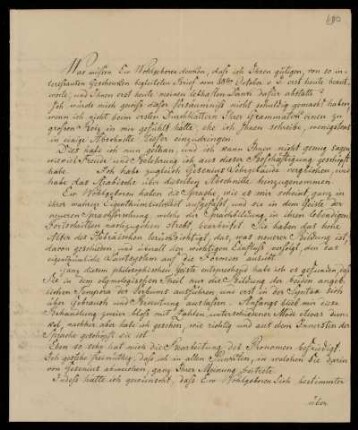 Was müssen Ew Wohlgeboren denken, daß ich Ihren gütigen, von so in-
teressanten Geschenken begleiteten Brief vom October v. J. erst heute beant-
worte, und Ihnen erst heute meinen lebhaften Dank dafür abstatte?
Ich würde mich gewiß dieser Versäumniß nicht schuldig gemacht haben,
wenn ich nicht beim ersten Durchblättern Ihrer Grammatik einen zu
großen Reiz in mir gefühlt hätte, ehe ich Ihnen schriebe, wenigstens
in einige Abschnitte tiefer einzudringen.
Dies habe ich nun gethan, und ich kann Ihnen nicht genug sagen,
wieviel Freude und Belehrung ich aus dieser Beschäftigung geschöpft
habe. Ich habe zugleich Gesenius verglichen, und
habe das Arabische über dieselben Abschnitte hinzugenommen.
Ew Wohlgeboren haben die Sprache, wie es mir scheint, ganz in
ihrer wahren Eigenthümlichkeit aufgefaßt, und sie in dem Geiste der
neueren Sprachforschung, welche die Sprachbildung in ihren lebendigen
Fortschritten nachzugehen strebt, bearbeitet. Sie haben das hohe
Alter des Hebräischen berücksichtigt, das, was neuere Bildung ist,
davon geschieden, und überall den wichtigen Einfluß verfolgt, den das
eigenthümliche Lautsystem auf die Formen ausübt.
Ganz diesem philosophischen Geiste entsprechend habe ich es gefunden, daß
Sie in dem etymologischen Theil nur die Bildung der beiden angeb-
lichen Tempora des Verbums ausführen und erst in der Syntax sich
über Gebrauch und Bedeutung auslassen. Anfangs blieb mir diese
Behandlung zweier bloß mit Zahlen unterschiedener Modi etwas dun-
kel, nachher aber habe ich gesehen, wie richtig und aus dem Innersten der
Sprache geschöpft sie ist.
Eben so sehr hat mich die Bearbeitung des Pronomen befriedigt.
Ich gestehe freimüthig, daß ich in allen Punkten, in welchen Sie darin
von Gesenius abweichen, ganz Ihrer Meinung beitrete.
Indeß hätte ich gewünscht, daß Ew Wohlgeboren Sich bestimmter
über